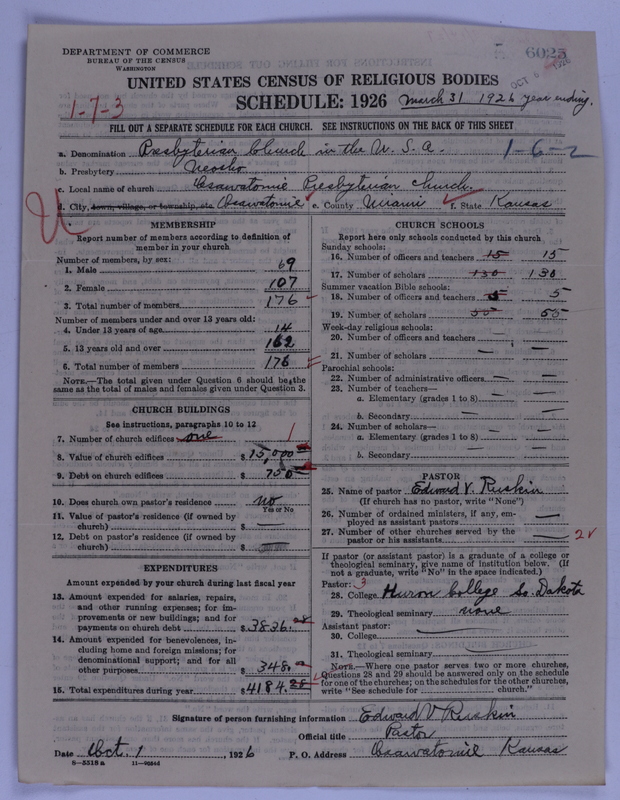 DEPARTMENT OF COMMERCE
BUREAU OF THE CENSUS
WASHINGTON
6025
OCT 6 1926
UNITED STATES CENSUS OF RELIGIOUS BODIES
SCHEDULE: 1926 March 31 1926 year ending.
1-7-3
FILL OUT A SEPARATE SCHEDULE FOR EACH CHURCH. SEE INSTRUCTIONS ON THE BACK OF THIS SHEET
a. Denomination Presbyterian Church in the U. S. A.
1-6-2
b. Presbytery Neosho
c. Local name of church Osawatomie Presbyterian Church.
d. City, town, village, or township, etc. Osawatomie e. County Miami f. State Kansas
MEMBERSHIP
Report number of members according to definition of
member in your church
Number of members, by sex:
1. Male 69
2. Female 107
3. Total number of members 176
Number of members under and over 13 years old:
4. Under 13 years of age 14
5. 13 years old and over 162
6. Total number of members 176
NOTE.—The total given under Question 6 should be the
same as the total of males and females given under Question 3.
CHURCH BUILDINGS
See instructions, paragraphs 10 to 12
7. Number of church edifices one 1
8. Value of church edifices $ 15,000
9. Debt on church edifices $ 750
10. Does church own pastor's residence no
Yes or No
11. Value of pastor's residence (if owned by
church) $ —
12. Debt on pastor's residence (if owned by
church) $ —
EXPENDITURES
Amount expended by your church during last fiscal year
13. Amount expended for salaries, repairs,
and other running expenses; for im-
provements or new buildings; and for
payments on church debt $ 3836.28
14. Amount expended for benevolences, in-
cluding home and foreign missions; for
denominational support; and for all
other purposes $ 348.
15. Total expenditures during year $ 4184.28
CHURCH SCHOOLS
Report here only schools conducted by this church
Sunday schools:
16. Number of officers and teachers 15 15
17. Number of scholars 130 130
Summer vacation Bible schools:
18. Number of officers and teachers 5 5
19. Number of scholars 55 55
Week-day religious schools:
20. Number of officers and teachers —
21. Number of scholars — —
Parochial schools:
22. Number of administrative officers — —
23. Number of teachers—
a. Elementary (grades 1 to 8) — —
b. Secondary — —
24. Number of scholars—
a. Elementary (grades 1 to 8) — —
b. Secondary — —
PASTOR
25. Name of pastor Edward V. Ruskin
(If church has no pastor, write "None")
26. Number of ordained ministers, if any, em-
ployed as assistant pastors —
27. Number of other churches served by the
pastor or his assistants — 2
If pastor (or assistant pastor) is a graduate of a college or
theological seminary, give name of institution below. (If
not a graduate, write "No" in the space indicated.)
Pastor: 3
28. College Huron College So. Dakota
29. Theological seminary none
Assistant pastor:
30. College —
31. Theological seminary —
NOTE.—Where one pastor serves two or more churches,
Questions 28 and 29 should be answered only on the schedule
for one of the churches; on the schedules for the other churches,
write "See schedule for church."
Signature of person furnishing information Edward V Ruskin
Official title Pastor
Date Oct. 1, 1926 P. O. Address Osawatomie Kansas